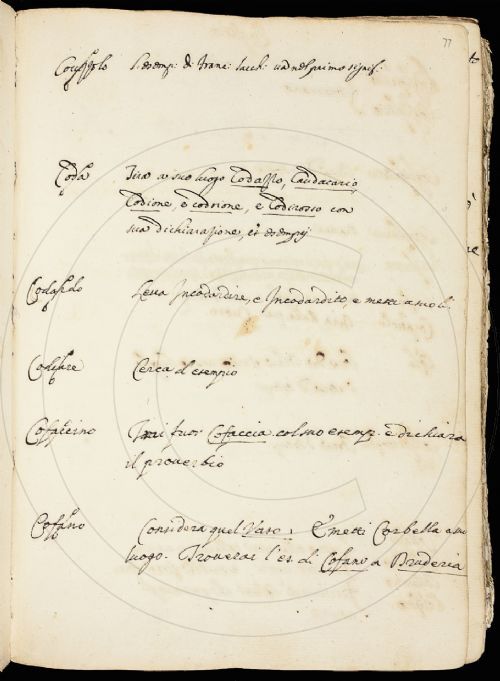 77
L'esemp: di Franc: Sacch: va nel primo signif:
Coda Tira a suo luogo Codazzo, Caudatario,
Codione, o codrione, e Codirosso con
sua dichiarazione, et esempj
Codardo Leva Incodardire, e Incodardito, e metti a suo l:
Codiare Cerca d'esempio
Cofaccino Trai fuor Cofaccia col suo esemp: e dichiara
il proverbio
Cofano Considera quel Vaso: E metti Corbella a suo
luogo. Troverai l'es. di Cofano a Bruderia